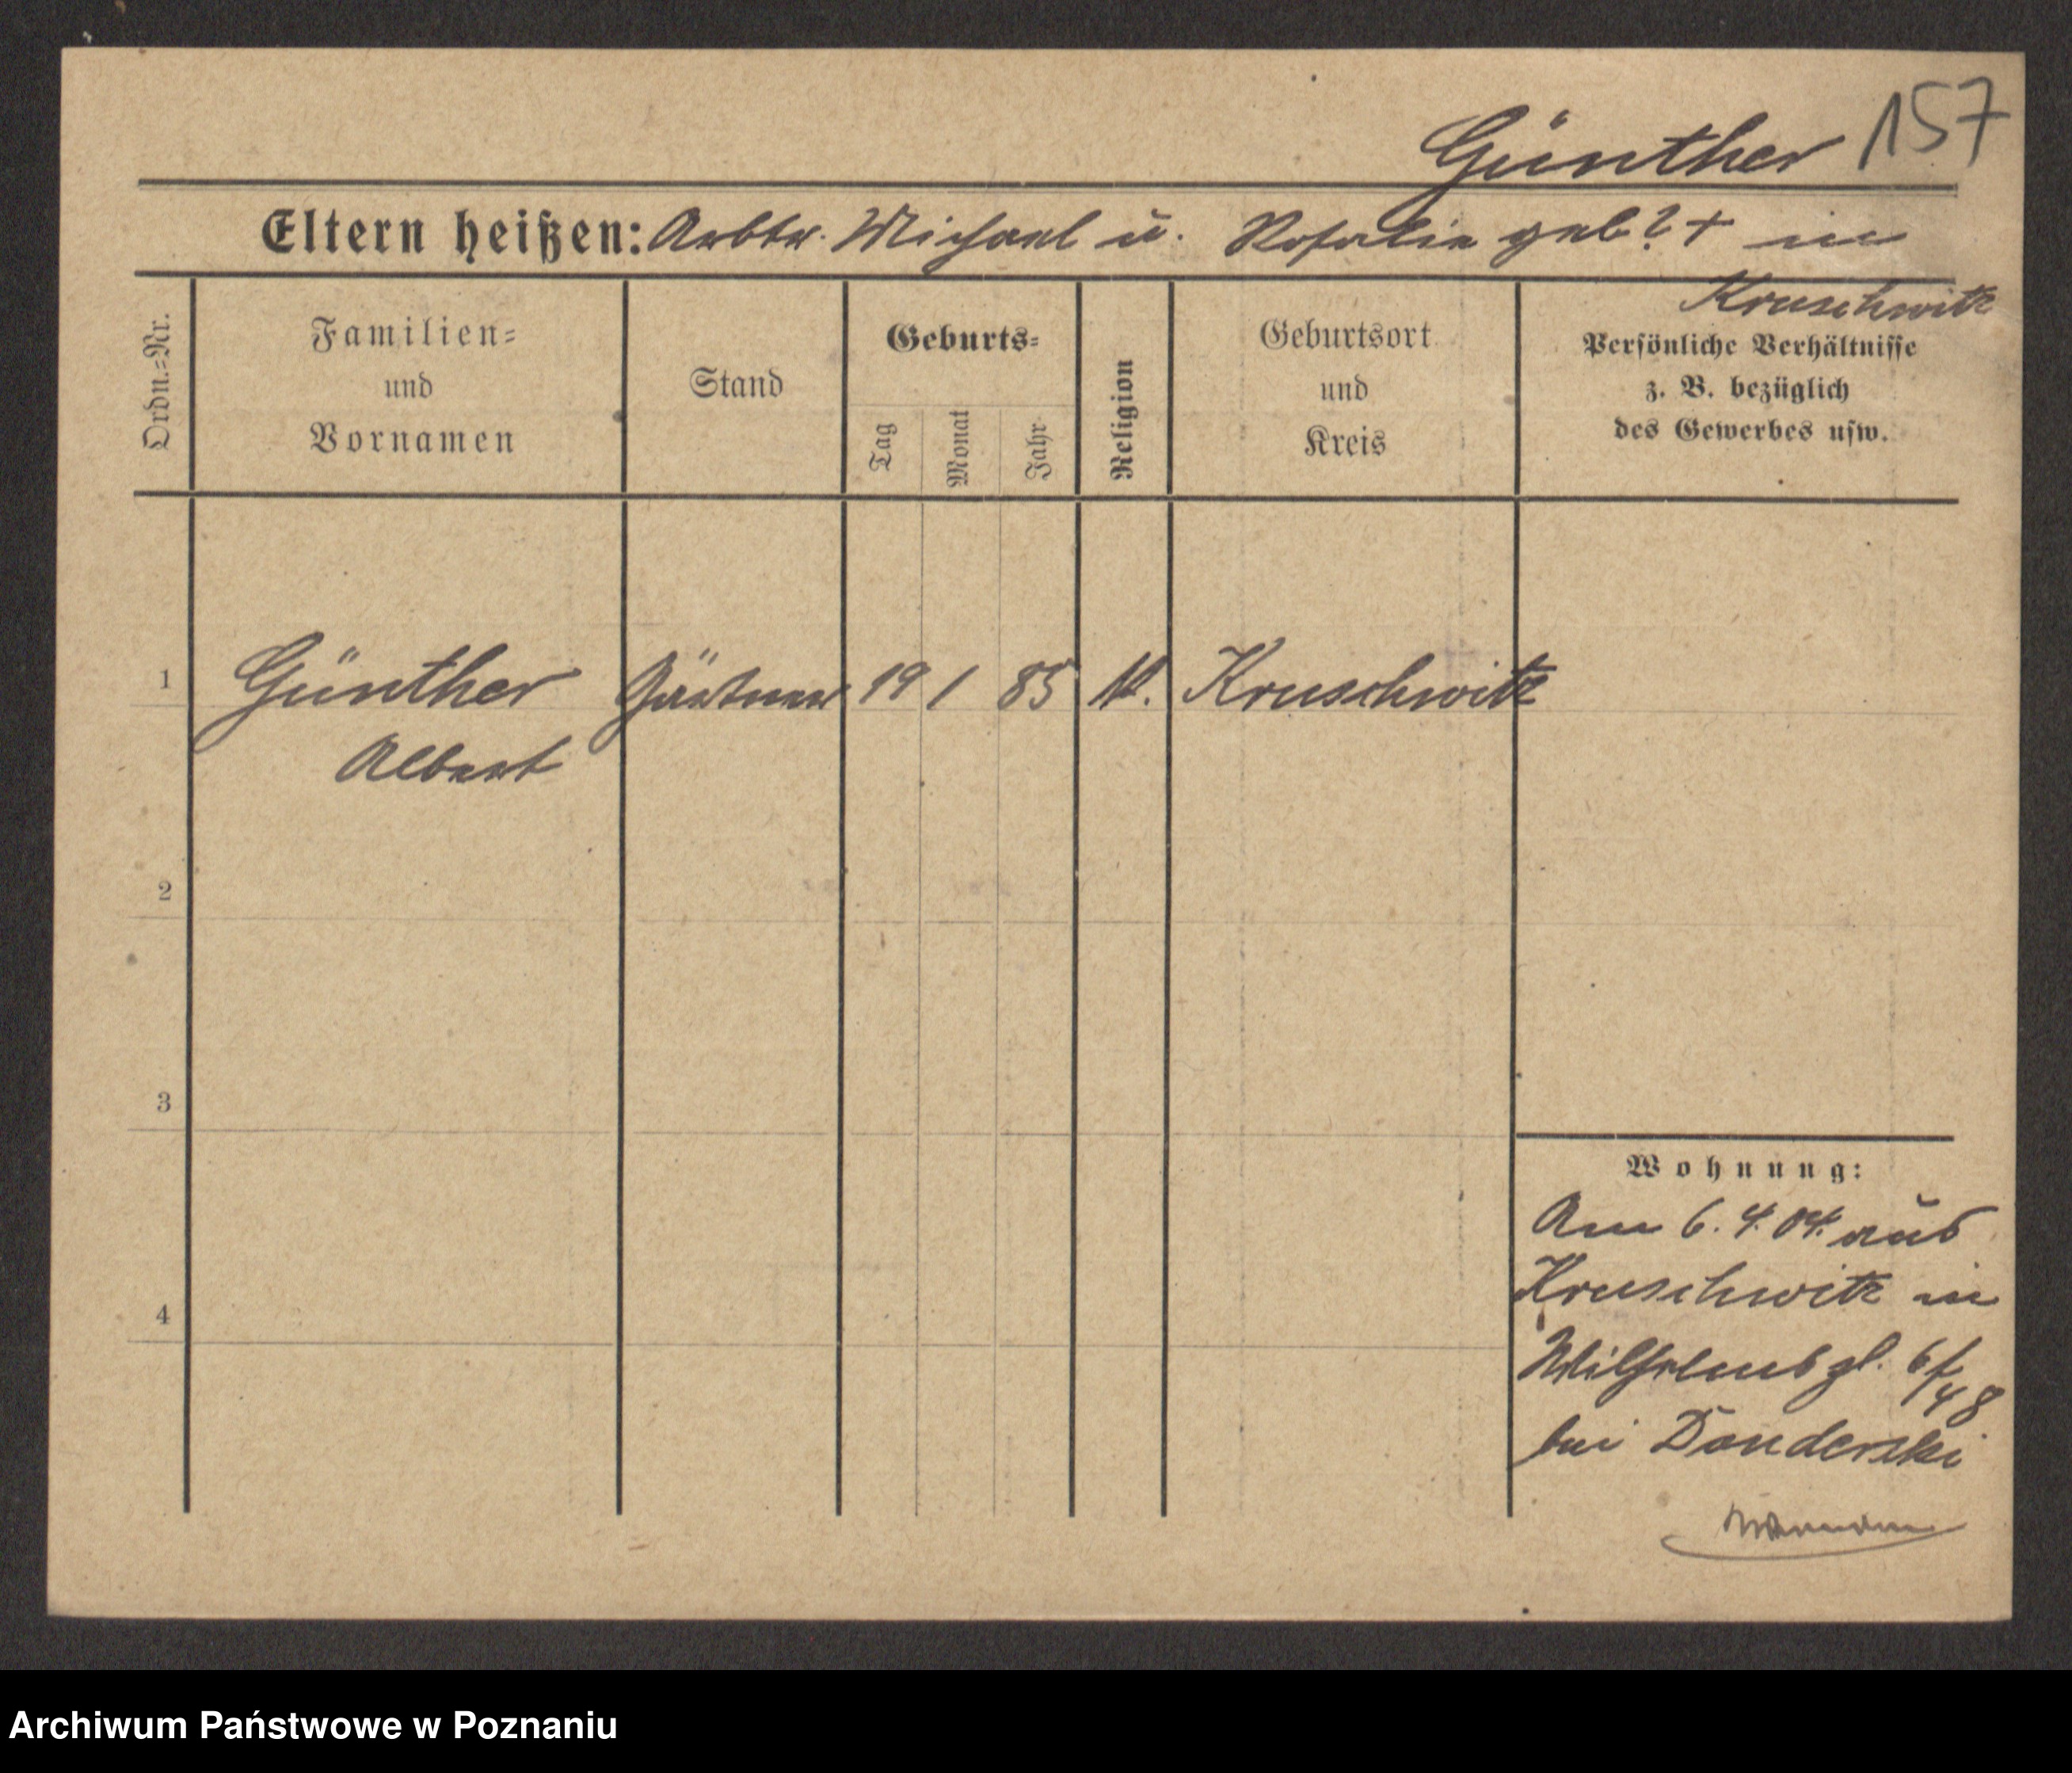 157
Günther
Eltern heißen: Arbtr. Michael u. Rosalie geb? + in
Kruschwitz
Ordn.=Nr.
Familien=
und
Vornamen
Stand
Geburts=
Tag
Monat
Jahr
Religion
Geburtsort
und
Kreis
Persönliche Verhältnisse
z. B. bezüglich
des Gewerbes usw.
1 Günther Gärtner 19 1 85 k. Kruschwitz
Albert
2
3
4
Wohnung:
Am 6. 4. 04. aus
Kruschwitz in
6/48
bei Donderski
Archiwum Państwowe w Poznaniu